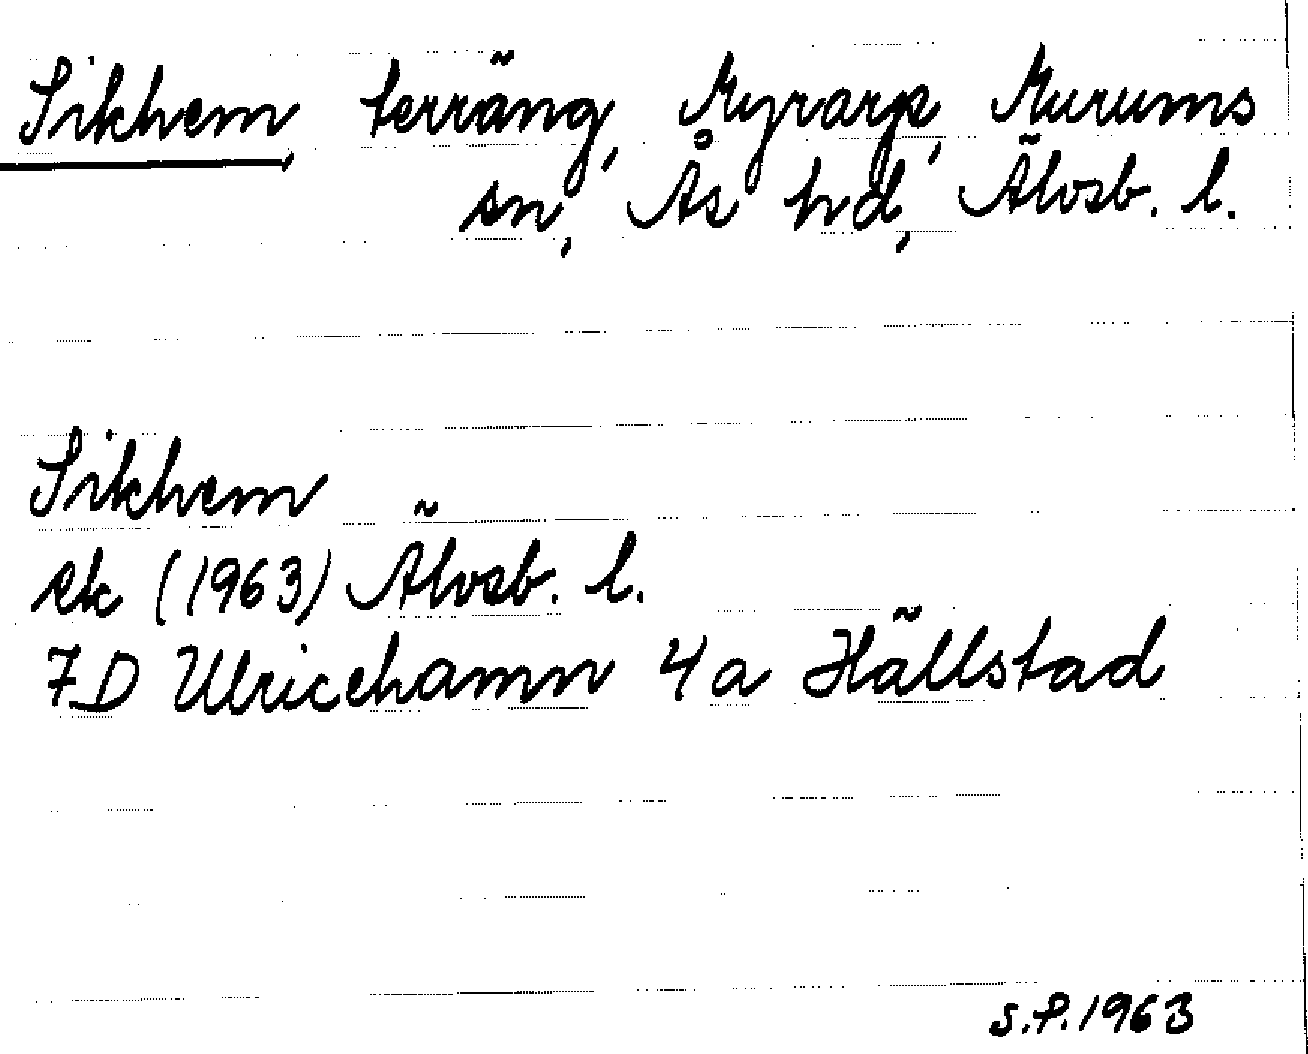 Sikhem, terräng, Myrarp, Murums
sn, Ås hd, Älvsb. l.
Sikhem
ek (1963) Älvsb. l.
7D Ulricehamn 4a Hällstad
S.P. 1963